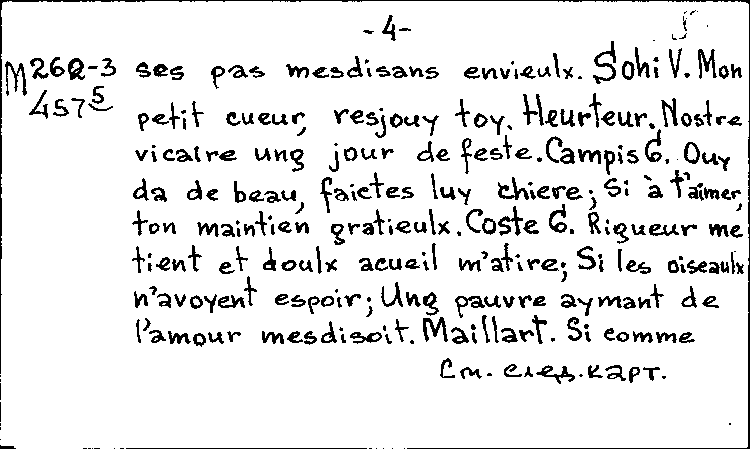 -4-
M 262-3 ses pas mesdisans envieulx. Sohi V. Mon
457 5 petit cueur, resjouy toy. Heurteur. Nostre
vicaire ung jour de feste. Campis G. Ouy
da de beau, faictes luy chiere; Si à t'aimer,
ton maintien gratieulx. Coste G. Rigueur me
tient et doulx acueil m'atire; Si les oiseaulx
n'avoyent espoir; Ung pauvre aymant de
l'amour mesdisoit. Maillart. Si comme
См. след. карт.